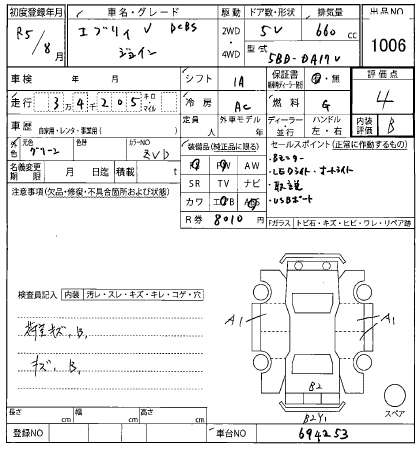 初度登録年月 車名・グレード 駆動 ドア数・形状 排気量 出品NO
R5/8月 エブリィ V DCBS ジョイン 2WD・4WD 5V 660 cc 1006
型式 5BD-DA17V
車検 年 月 シフト IA 保証書 有・無 評価点
走行 3万4千205 キロ マイル 冷房 AC 燃料 G 4
車歴 自家用・レンタ・事業用( ) 定員 人 外車モデル 年 ディーラー 並行 ハンドル 左・右 内装評価 B
外色 元色 グリーン 色替 カラーNO ZVD
名義変更期限 月 日迄 積載 t
装備品(純正品に限る)
PS PW AW
SR TV ナビ
カワ エアB ABS
R券 8010 円
セールスポイント(正常に作動するもの)
・Bモニター
・LEDライト・オートライト
・取説
・USBポート
注意事項(欠品・修復・不具合箇所および状態)
Fガラス トビ石・キズ・ヒビ・ワレ・リペア跡
検査員記入 内装 汚レ・スレ・キズ・キレ・コゲ・穴
荷室キズ、B、
キズ、B、
A1
A1
B2
B2Y1
スペア
長さ cm 幅 cm 高さ cm
登録NO 車台NO 694253